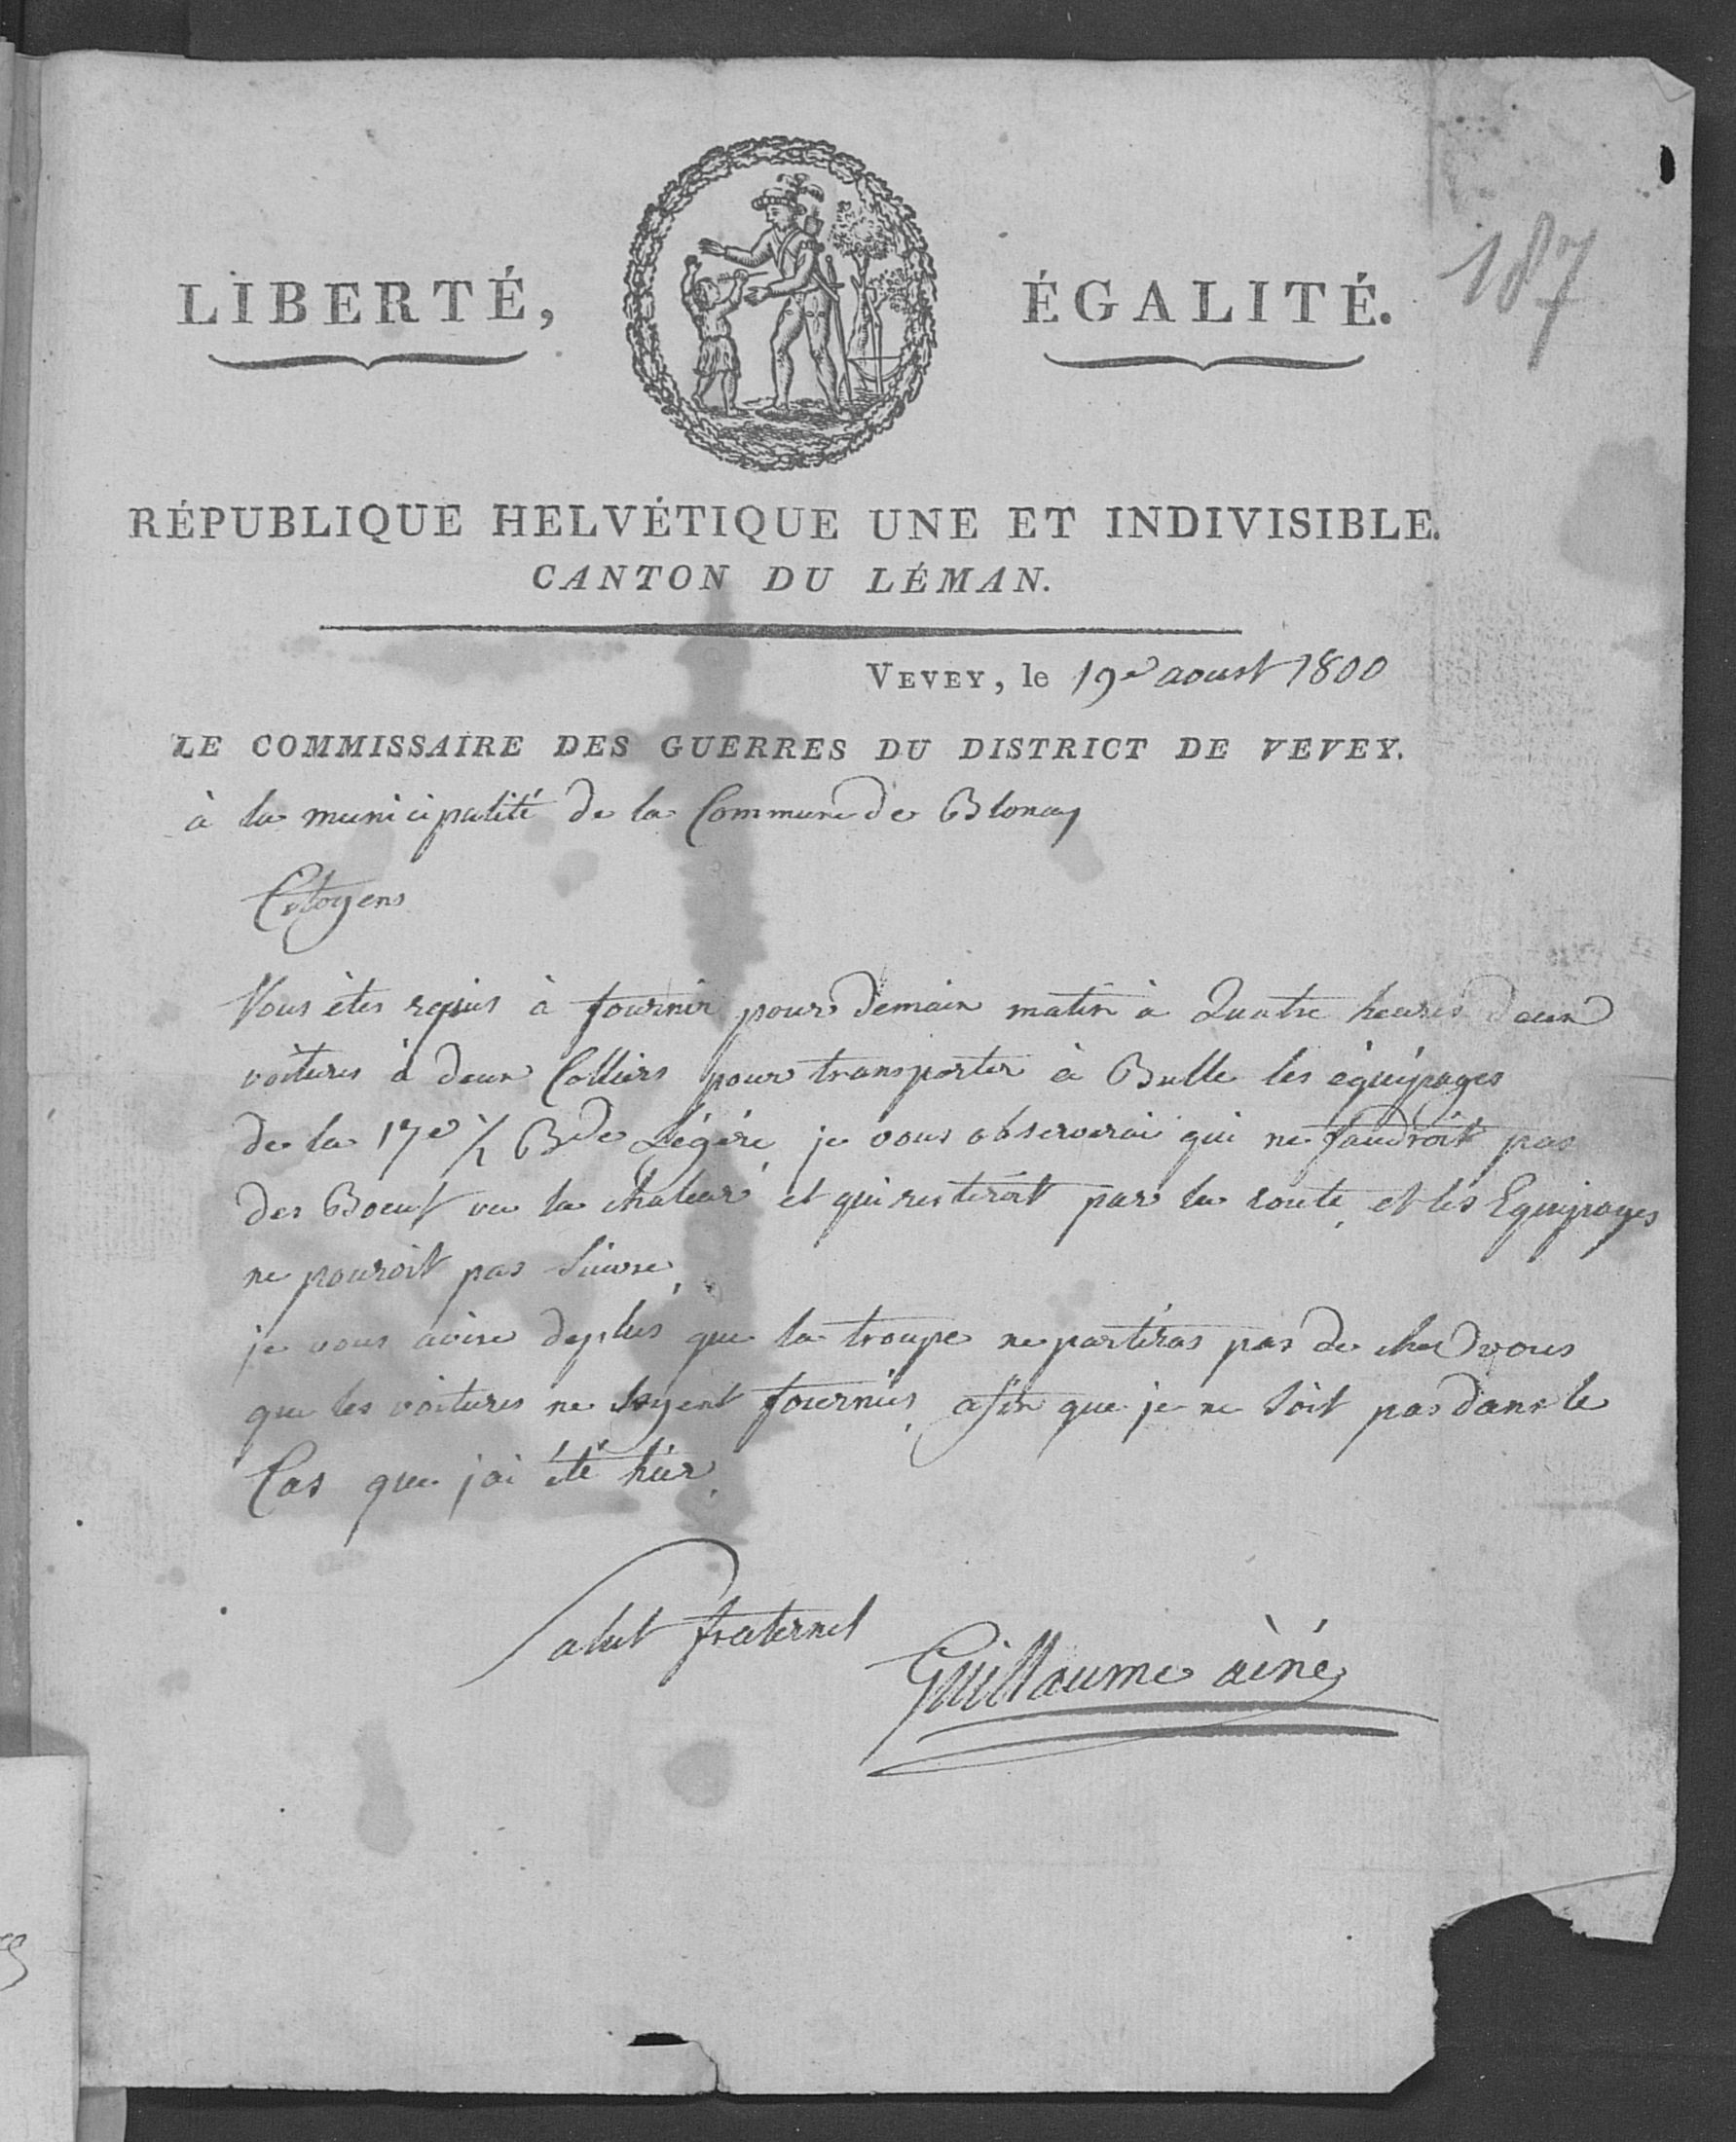 187
LIBERTÉ, ÉGALITÉ.
RÉPUBLIQUE HELVÉTIQUE UNE ET INDIVISIBLE.
CANTON DU LÉMAN.
VEVEY, le 19e aoust 1800
LE COMMISSAIRE DES GUERRES DU DISTRICT DE VEVEY.
à la municipalité de la Commune de Blonay
Citoyens
Vous êtes requis à fournir pour demain matin à Quatre heures deux
voitures à deux Colliers pour transporter à Bulle les équipages
de la 17e 1/2 Bde Légére, je vous observerai qui ne faudroit pas
des Boeuf vu la chaleur et qui resteroit par la route, et les Equipages
ne pouroit pas suivre,
je vous avise deplus que la troupe ne partiras pas de chez vous
que les voitures ne soyent fournies, afin que je ne soit pas dans le
Cas que jai été hier,
Salut fraternel
Guillaume ainé